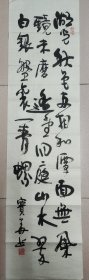 湖光秋月兩相和潭面無風
鏡未磨遥望洞庭山水翠
白銀盤裏一青螺